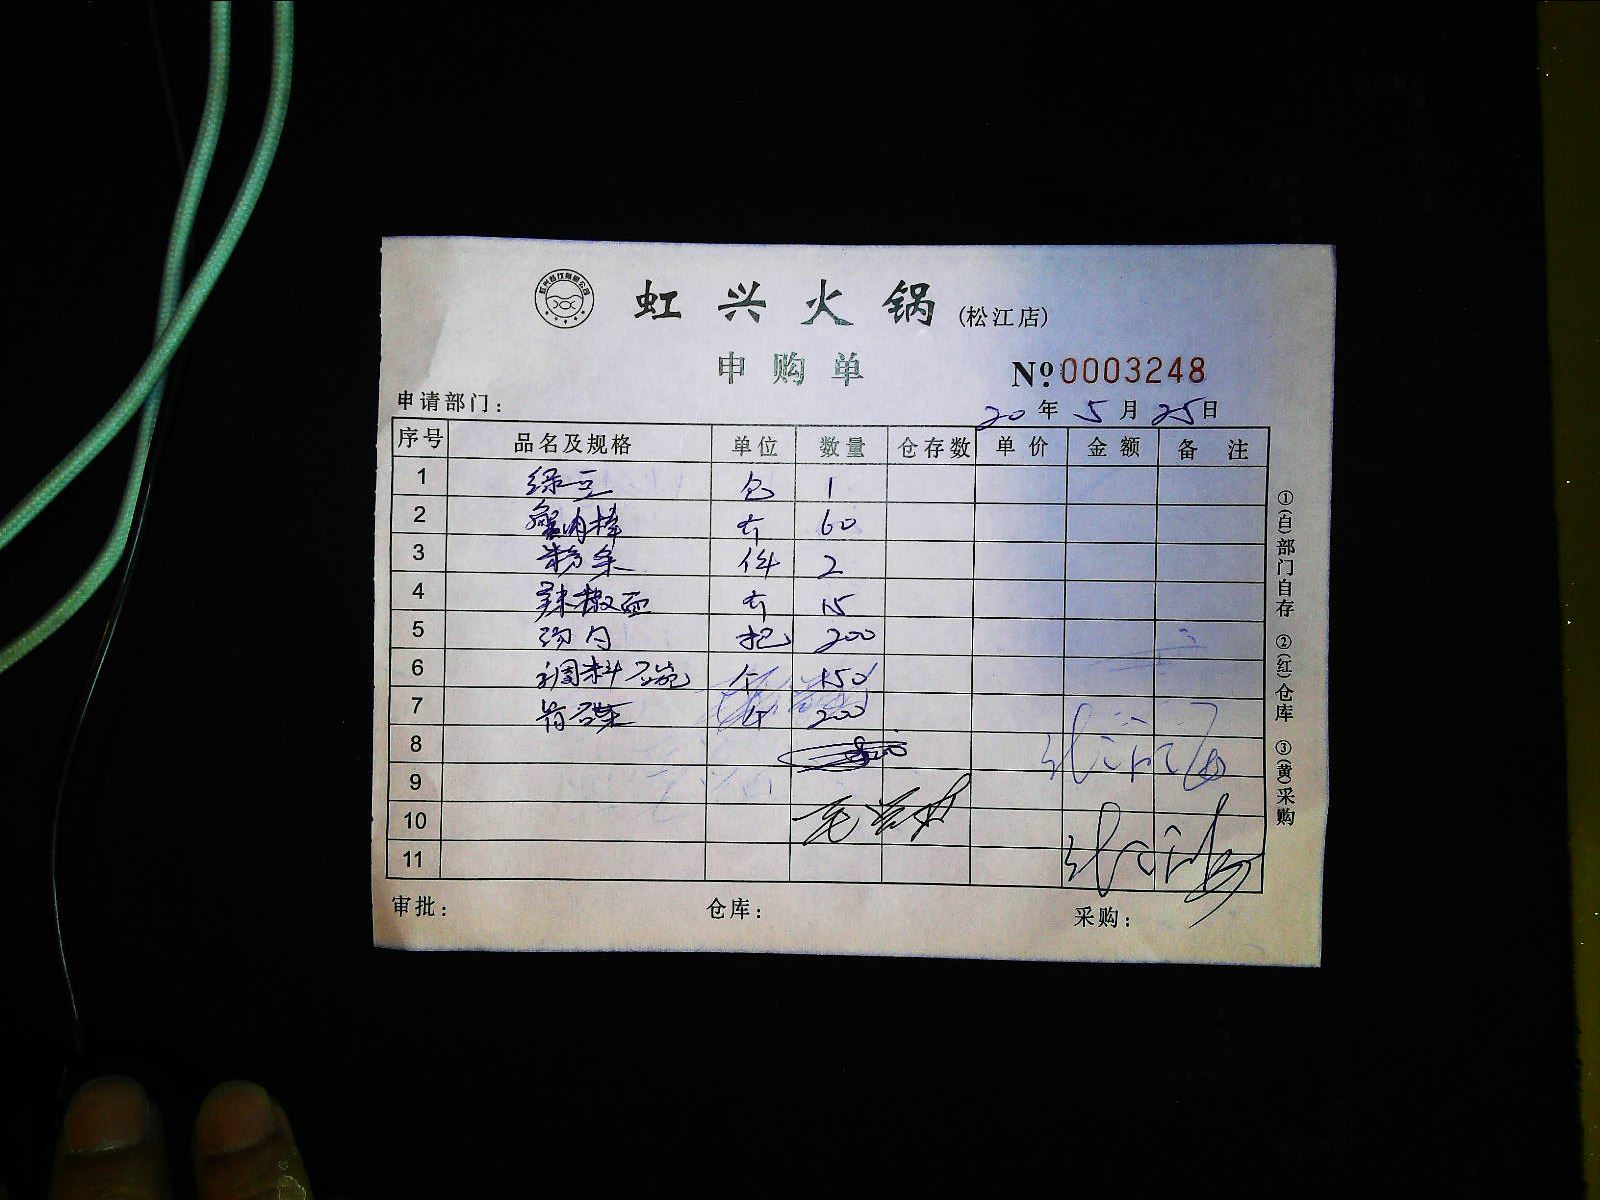 虹兴火锅 (松江店)
申购单 No 0003248
申请部门： 20年 5月 25日
序号 品名及规格 单位 数量 仓存数 单价 金额 备注
1 绿豆 包 1
2 蟹肉棒 斤 60
3 粉条 件 2
4 辣椒面 斤 15
5 汤勺 把 200
6 调料碗 个 150
7 骨碟 个 200
8
9
10
11
审批： 仓库： 采购：
①(白)部门自存 ②(红)仓库 ③(黄)采购